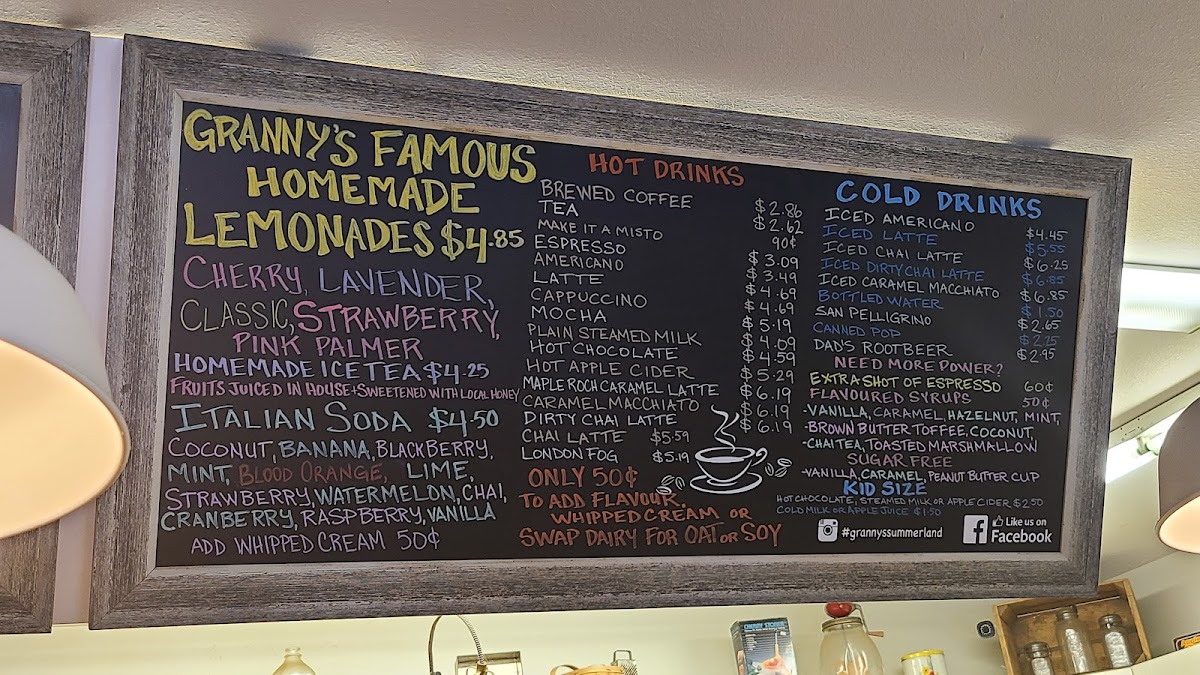 GRANNY'S FAMOUS
HOMEMADE
LEMONADES $4.85
CHERRY, LAVENDER,
CLASSIC, STRAWBERRY,
PINK PALMER
HOMEMADE ICE TEA $4.25
FRUITS JUICED IN HOUSE + SWEETENED WITH LOCAL HONEY
ITALIAN SODA $4.50
COCONUT, BANANA, BLACKBERRY,
MINT, BLOOD ORANGE, LIME,
STRAWBERRY, WATERMELON, CHAI,
CRANBERRY, RASPBERRY, VANILLA
ADD WHIPPED CREAM 50¢
HOT DRINKS
BREWED COFFEE $2.86
TEA $2.62
MAKE IT A MISTO 90¢
ESPRESSO $3.09
AMERICANO $3.49
LATTE $4.69
CAPPUCCINO $4.69
MOCHA $5.19
PLAIN STEAMED MILK $4.09
HOT CHOCOLATE $4.59
HOT APPLE CIDER $5.29
MAPLE ROCH CARAMEL LATTE $6.19
CARAMEL MACCHIATO $6.19
DIRTY CHAI LATTE $6.19
CHAI LATTE $5.59
LONDON FOG $5.19
ONLY 50¢
TO ADD FLAVOUR,
WHIPPED CREAM OR
SWAP DAIRY FOR OAT OR SOY
COLD DRINKS
ICED AMERICANO $4.45
ICED LATTE $5.55
ICED CHAI LATTE $6.25
ICED DIRTY CHAI LATTE $6.85
ICED CARAMEL MACCHIATO $6.85
BOTTLED WATER $1.50
SAN PELLIGRINO $2.65
CANNED POP $2.25
DAD'S ROOTBEER $2.95
NEED MORE POWER?
EXTRA SHOT OF ESPRESSO 60¢
FLAVOURED SYRUPS 50¢
-VANILLA, CARAMEL, HAZELNUT, MINT,
-BROWN BUTTER TOFFEE, COCONUT,
-CHAI TEA, TOASTED MARSHMALLOW
SUGAR FREE
-VANILLA, CARAMEL, PEANUT BUTTER CUP
KID SIZE
HOT CHOCOLATE, STEAMED MILK OR APPLE CIDER $2.50
COLD MILK OR APPLE JUICE $1.50
#grannyssummerland
Like us on
Facebook